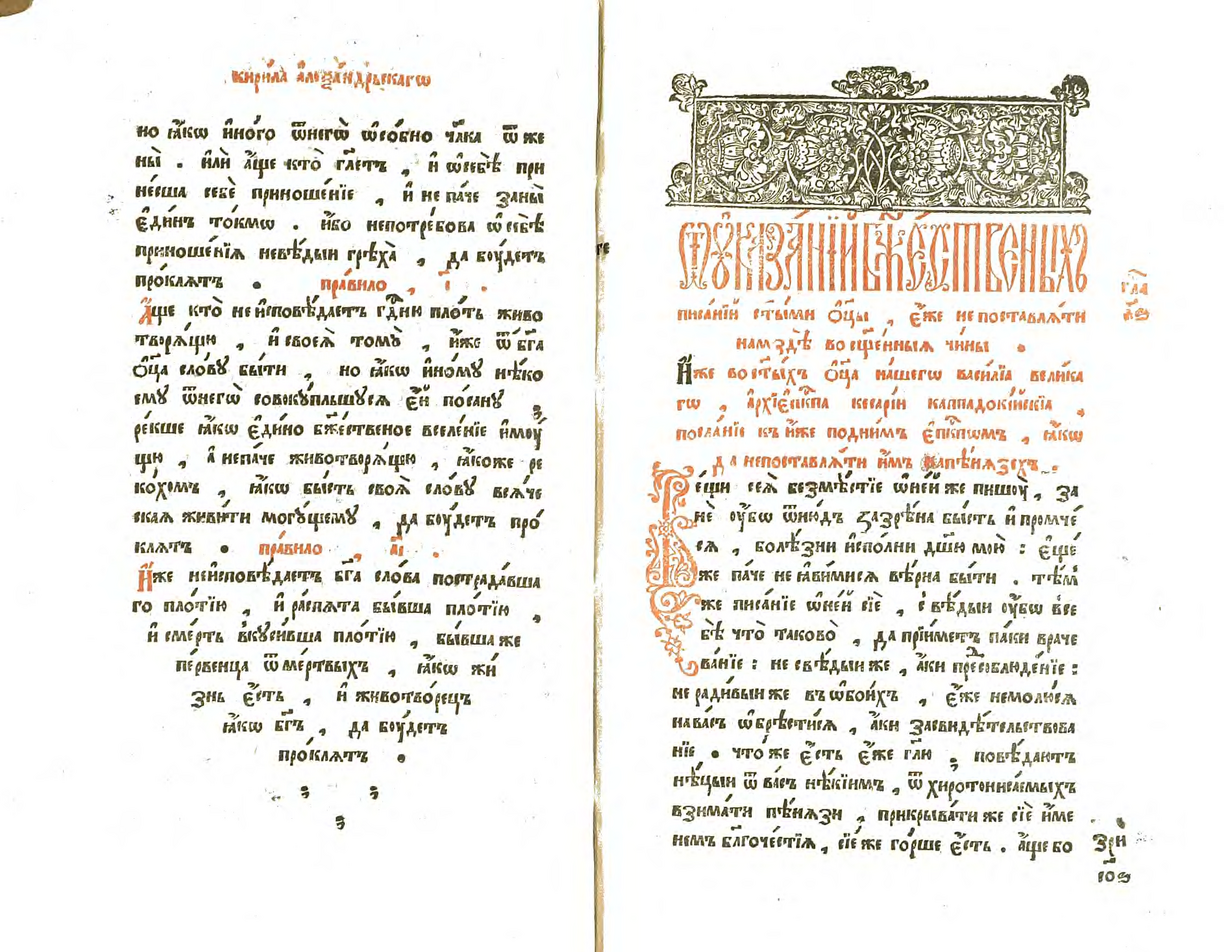 кири́ла алеѯа́ндрьскагѡ
но ꙗ҆́кѡ и҆но́го ѿнегѡ̀ ѡ҆со́бно чл҃ка ѿ же
ны̀ . и҆лѝ а҆́ще кто̀ гл҃етъ , и҆ ѡ҆себѣ̀ при
не́сша себѐ приноше́нїе , и҆ не па́че заны̀
є҆ди́нъ то́кмѡ . и҆́бо непотре́бова ѡ҆ себѣ̀
приноше́нїѧ невѣ́дыи грѣха̀ , да бꙋ́детъ
про́клѧтъ . пра́вило , і҃ .
А҆́ще кто̀ не и҆сповѣ́даетъ гд҇ню пло́ть живо
творѧ́щю , и҆ своеѧ̀ томꙋ̀ , и҆́же ѿ бг҃а
ѻ҆ц҃а сло́вꙋ бы́ти , но ꙗ҆́кѡ и҆но́мꙋ нѣ́ко
емꙋ ѿнегѡ̀ совокꙋ́пльшꙋсѧ є҆́й посанꙋ̀
ре́кше ꙗ҆́кѡ є҆ди́но бж҃ественое вселе́нїе и҆мꙋ́
щю , а҆ непа́че животворѧ́щю , ꙗ҆́коже ре
кохо́мъ , ꙗ҆́кѡ бы́сть своѧ̀ сло́вꙋ всѧ́че
скаѧ живи́ти могꙋ́щемꙋ , да бꙋ́детъ про́
клѧтъ . пра́вило , а҃і .
И҆́же неи҆сповѣ́даетъ бг҃а сло́ва пострада́вша
го пло́тїю , и҆ распѧ́та бы́вша пло́тїю ,
и҆ сме́рть вкꙋси́вша пло́тїю , бы́вша же
пе́рвенца ѿ ме́ртвыхъ , ꙗ҆́кѡ жи́
знь є҆́сть , и҆ животво́рецъ
ꙗ҆́кѡ бг҃ъ , да бꙋ́детъ
про́клѧтъ .
Ѿ ᲂу҆каза́нїи бж҃е́ственыхъ
гла҃
писа́нїй ст҃ы́ми ѻ҆ц҃ы̀ , є҆́же не поставлѧ́ти
намздѣ̀ во сщ҃е́нныѧ чи́ны .
И҆́же во ст҃ы́хъ ѻ҆ц҃а на́шегѡ васи́лїа вели́ка
гѡ , а҆рхїепⷭ҇кпа кесарі́и каппадокі́йскїа ,
посла́нїе къ и҆́же подни́мъ є҆пⷭ҇кпѡмъ , ꙗ҆́кѡ
да непоставлѧ́ти и҆́мъ напѣ́нѧзехъ .
Ве́щи сеѧ̀ безмѣ́стїе ѡ҆не́й же пишꙋ̀ , за
нѐ ᲂу҆́бѡ ѿню́дъ ꙁазрѣ́на бы́сть и҆ промче́
сѧ , болѣ́зни и҆спо́лни дш҃ю мою̀ : є҆ще́
же па́че не ꙗ҆ви́мисѧ вѣ́рна бы́ти . тѣ́м
же писа́нїе ѡ҆не́й сїѐ , свѣ́дыи ᲂу҆́бѡ все
бѣ̀ что̀ таково̀ , да прїи́метъ па́ки враче
ва́нїе : не свѣ́дыи же , а҆́ки пресоблюде́нїе :
не ради́выи же въ ѻ҆бои́хъ , є҆́же немолю́сѧ
на ва́съ ѡ҆брѣ́стисѧ , а҆́ки засвидѣ́тельствова
нїе . что́ же є҆́сть є҆́же гл҃ю , повѣ́даютъ
нѣ́цыи ѿ ва́съ нѣ́кїимъ , ѿ хиротониса́емыхъ
взима́ти пѣ́нѧзи , прикрыва́ти же сїѐ и҆́ме
немъ бл҃гоче́стїѧ , сїе́ же го́рше є҆́сть . а҆́ще бо
зрѝ